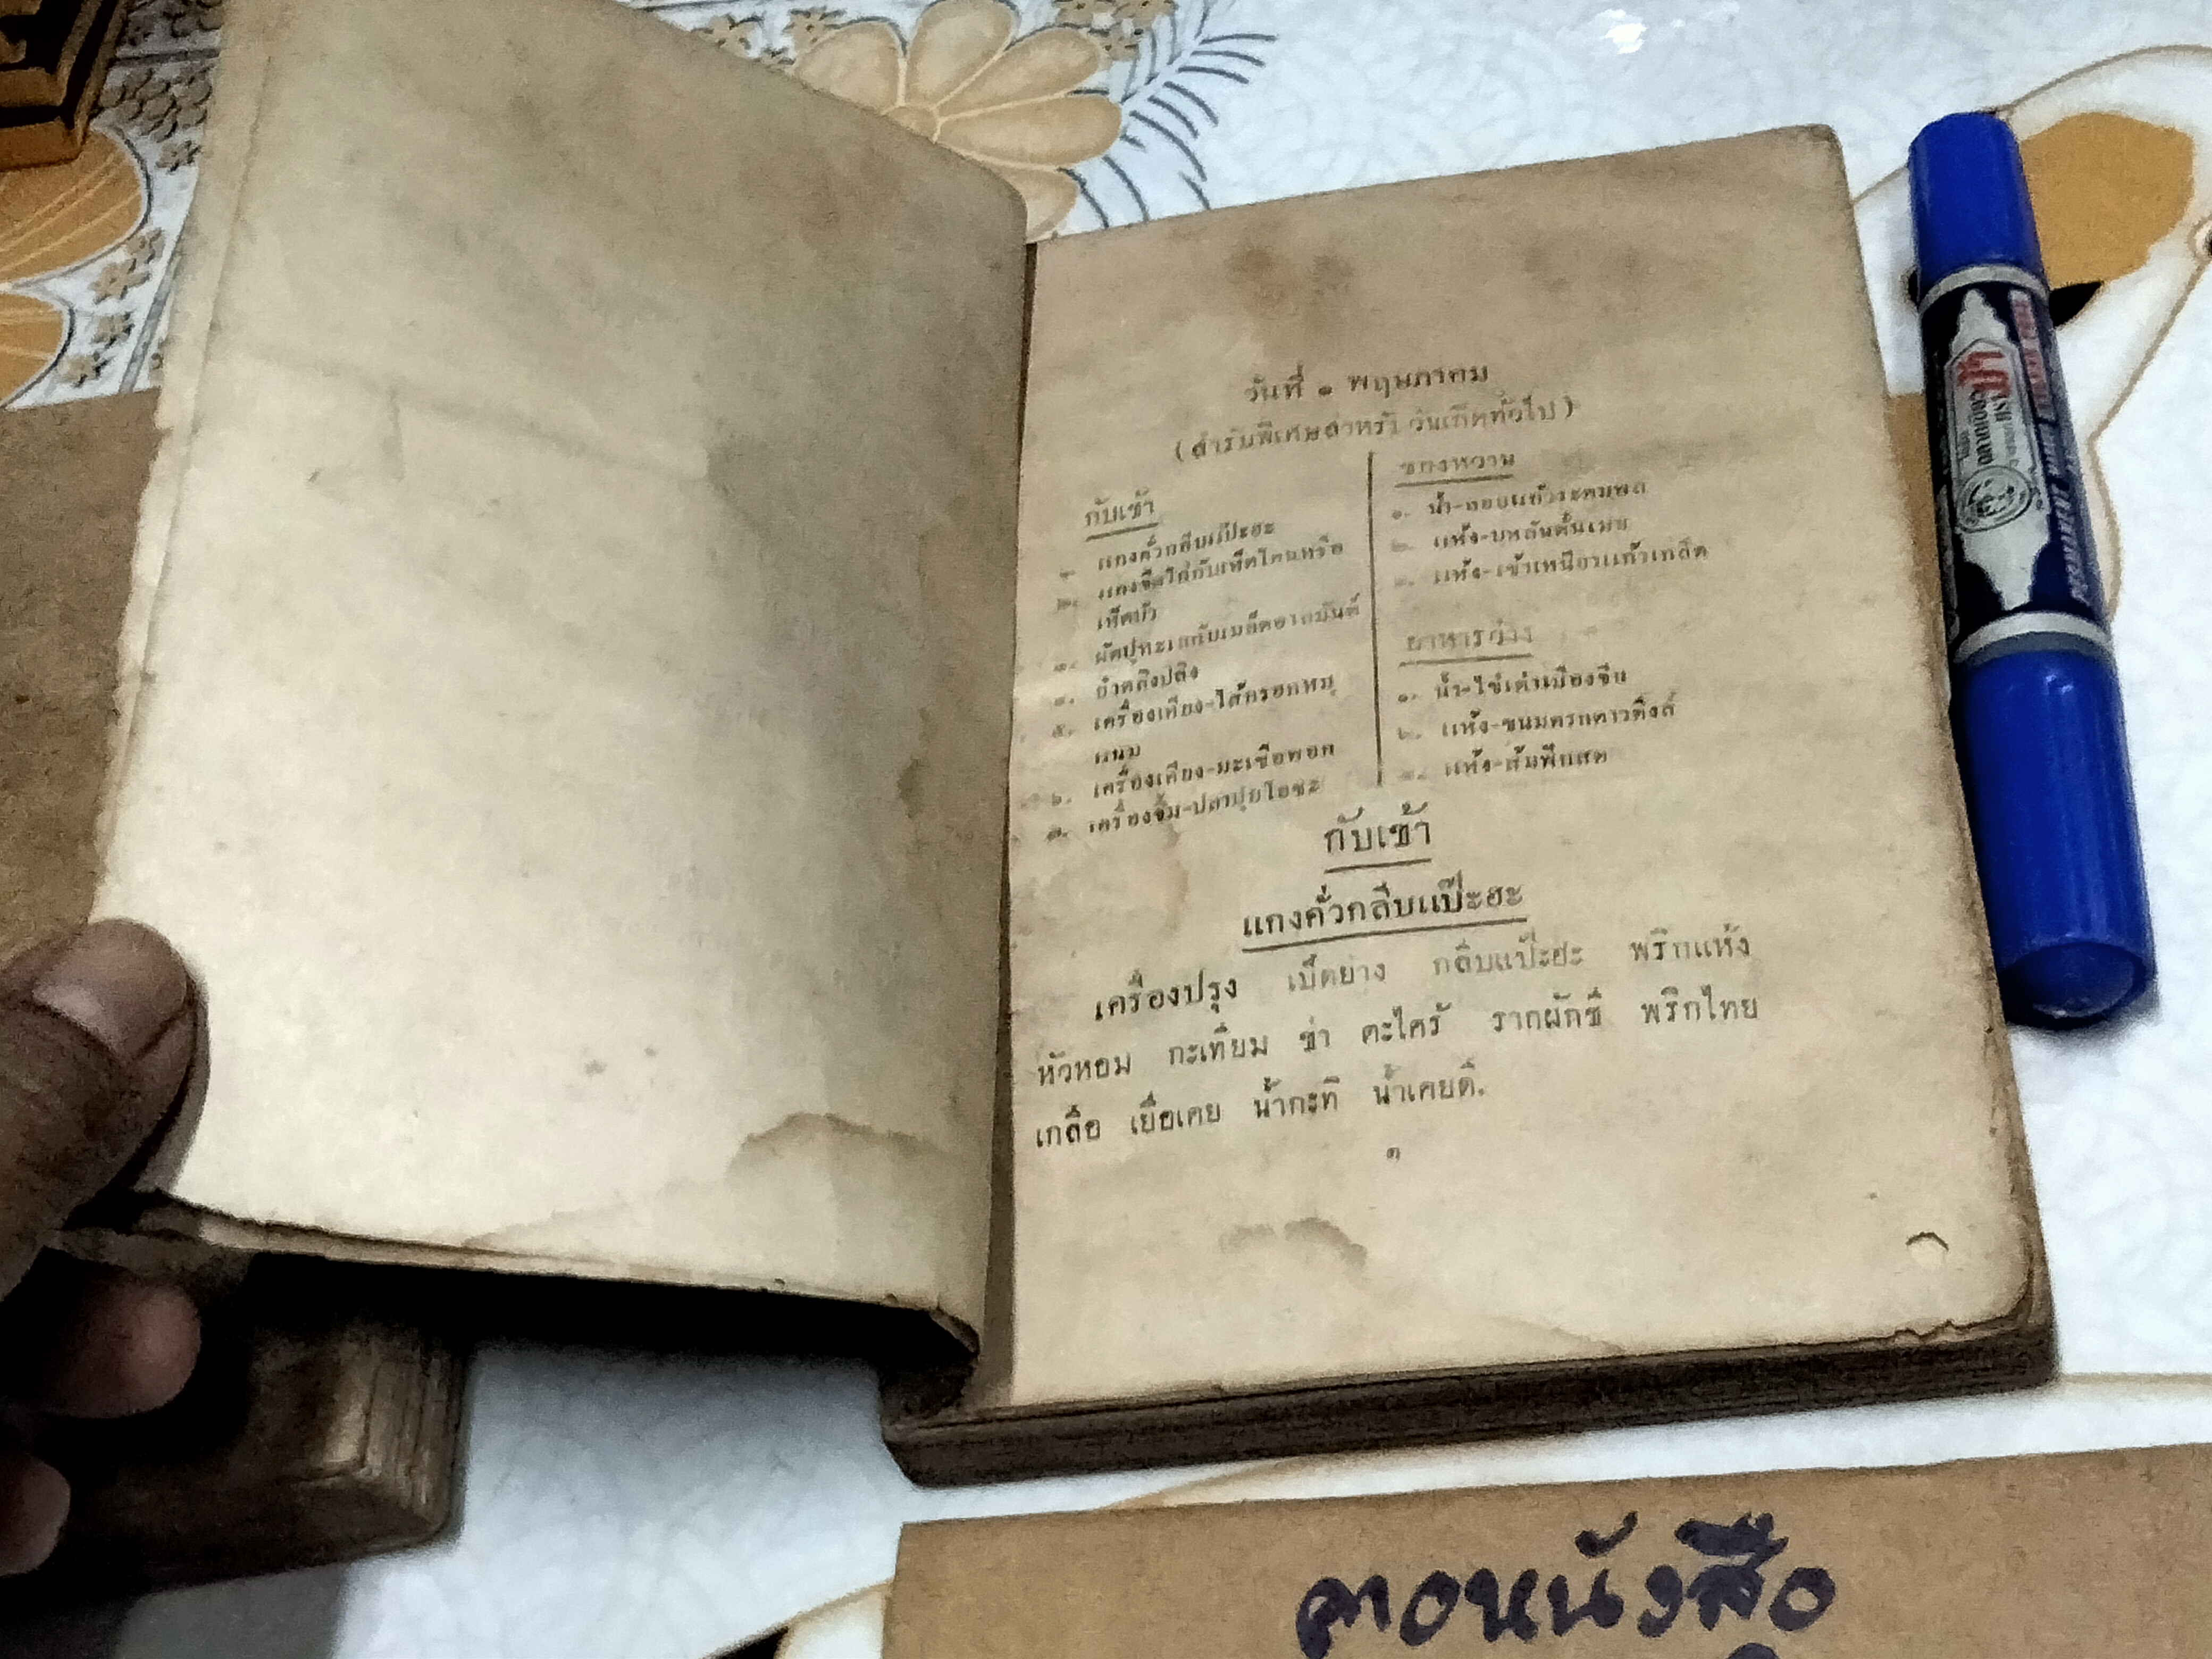 วันที่ ๑ พฤษภาคม
(สำรับพิเศษสำหรับ วันเกิดทั่วไป)
กับเข้า
๑. แกงคั่วกลีบแป๊ะฮะ
๒. แกงจืดไก่กับเห็ดโคนหรือ
เห็ดบัว
๓. ผัดปูทะเลกับเมล็ดอาลมันด์
๔. ยำตลิงปลิง
๕. เครื่องเคียง-ไส้กรอกหมู
แนม
๖. เครื่องเคียง-มะเขือพอก
๗. เครื่องจิ้ม-ปลาปุยโอชะ
ของหวาน
๑. น้ำ-ลอยแก้ว
๒. แห้ง-
๓. แห้ง-เข้าเหนียวแก้วเกล็ด
อาหารว่าง
๑. น้ำ-ไข่เค่นเมืองจีน
๒. แห้ง-ขนมครกดาวดึงส์
๓. แห้ง-ส้มฟักสด
กับเข้า
แกงคั่วกลีบแป๊ะฮะ
เครื่องปรุง เป็ดย่าง กลีบแป๊ะฮะ พริกแห้ง
หัวหอม กะเทียม ข่า ตะไคร้ รากผักชี พริกไทย
เกลือ เยื่อเคย น้ำกะทิ น้ำเคยดี.
๑
ลาดหนังสือ
ตราม้า